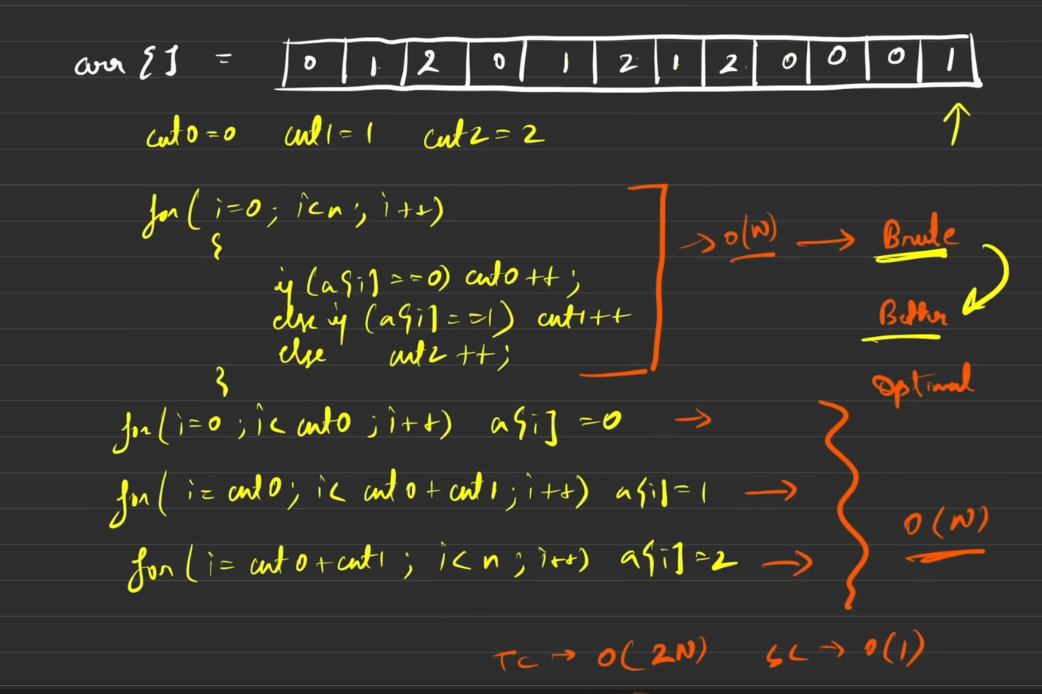 arr [] = 0 1 2 0 1 2 1 2 0 0 0 1
cnt0=0 cnt1=1 cnt2=2
for( i=0; i<n; i++)
{
if (a[i]==0) cnt0++;
else if (a[i]==1) cnt1++
else cnt2++;
}
→ O(N) → Brute
Better
Optimal
for(i=0; i< cnt0; i++) a[i]=0 →
for( i= cnt0; i< cnt0+cnt1; i++) a[i]=1 →
for(i= cnt0+cnt1; i<n; i++) a[i]=2 →
O(N)
TC → O(2N) SC → O(1)